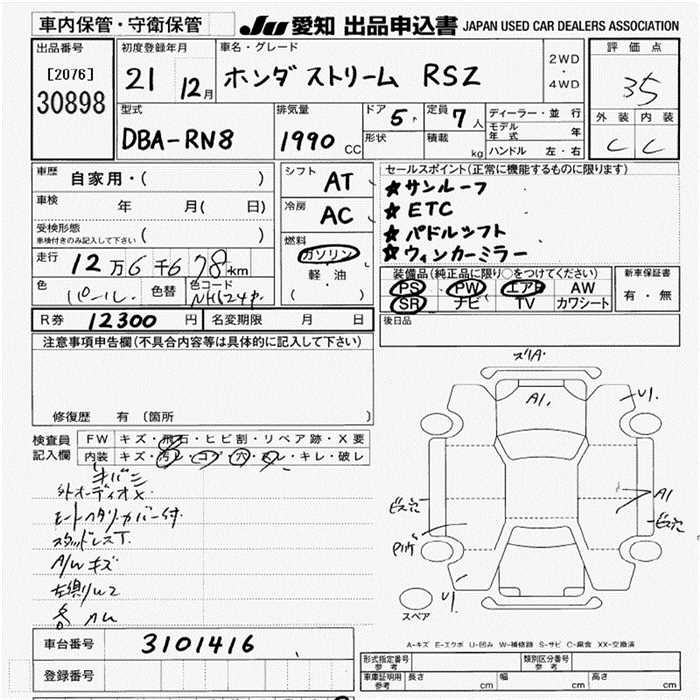 車内保管・守衛保管
JU 愛知 出品申込書 JAPAN USED CAR DEALERS ASSOCIATION
出品番号
[2076]
30898
初度登録年月
21 12月
車名・グレード
ホンダ ストリーム RSZ
2WD
・
4WD
評価点
35
外装 内装
C C
型式
DBA-RN8
排気量
1990 CC
ドア 5
形状
定員 7人
積載 kg
ディーラー・並行
モデル年式 年
ハンドル 左・右
車歴 自家用・( )
車検 年 月( 日)
受検形態
車検付きのみ記入して下さい ( )
走行 12万6千678km
色 パール 色替 色コード NH624P
シフト AT
冷房 AC
燃料
ガソリン
軽・油
( )
セールスポイント(正常に機能するものに限ります)
★サンルーフ
★ETC
★パドルシフト
★ウィンカーミラー
装備品(純正品に限り○をつけてください)
PS PW エアB AW
SR ナビ TV カワシート
新車保証書
有・無
R券 12300円 名変期限 月 日
後日品
注意事項申告欄(不具合内容等は具体的に記入して下さい)
修復歴 有〔箇所
検査員記入欄
FW キズ・飛石・ヒビ割・リペア跡・X要
内装 キズ・汚レ・コゲ・穴・スレ・キレ・破レ
外オーディオX
スタッドレスT.
A/Wキズ
ズリA
A1.
U1.
A1
ビス穴
ビス穴
U1.
スペア
A-キズ E-エクボ U-凹み W-補修跡 S-サビ C-腐食 XX-交換済
車台番号 3101416
登録番号
形式指定番号
参考
類別区分番号
参考
車庫証明用
参考
長さ cm 幅 cm 高さ cm